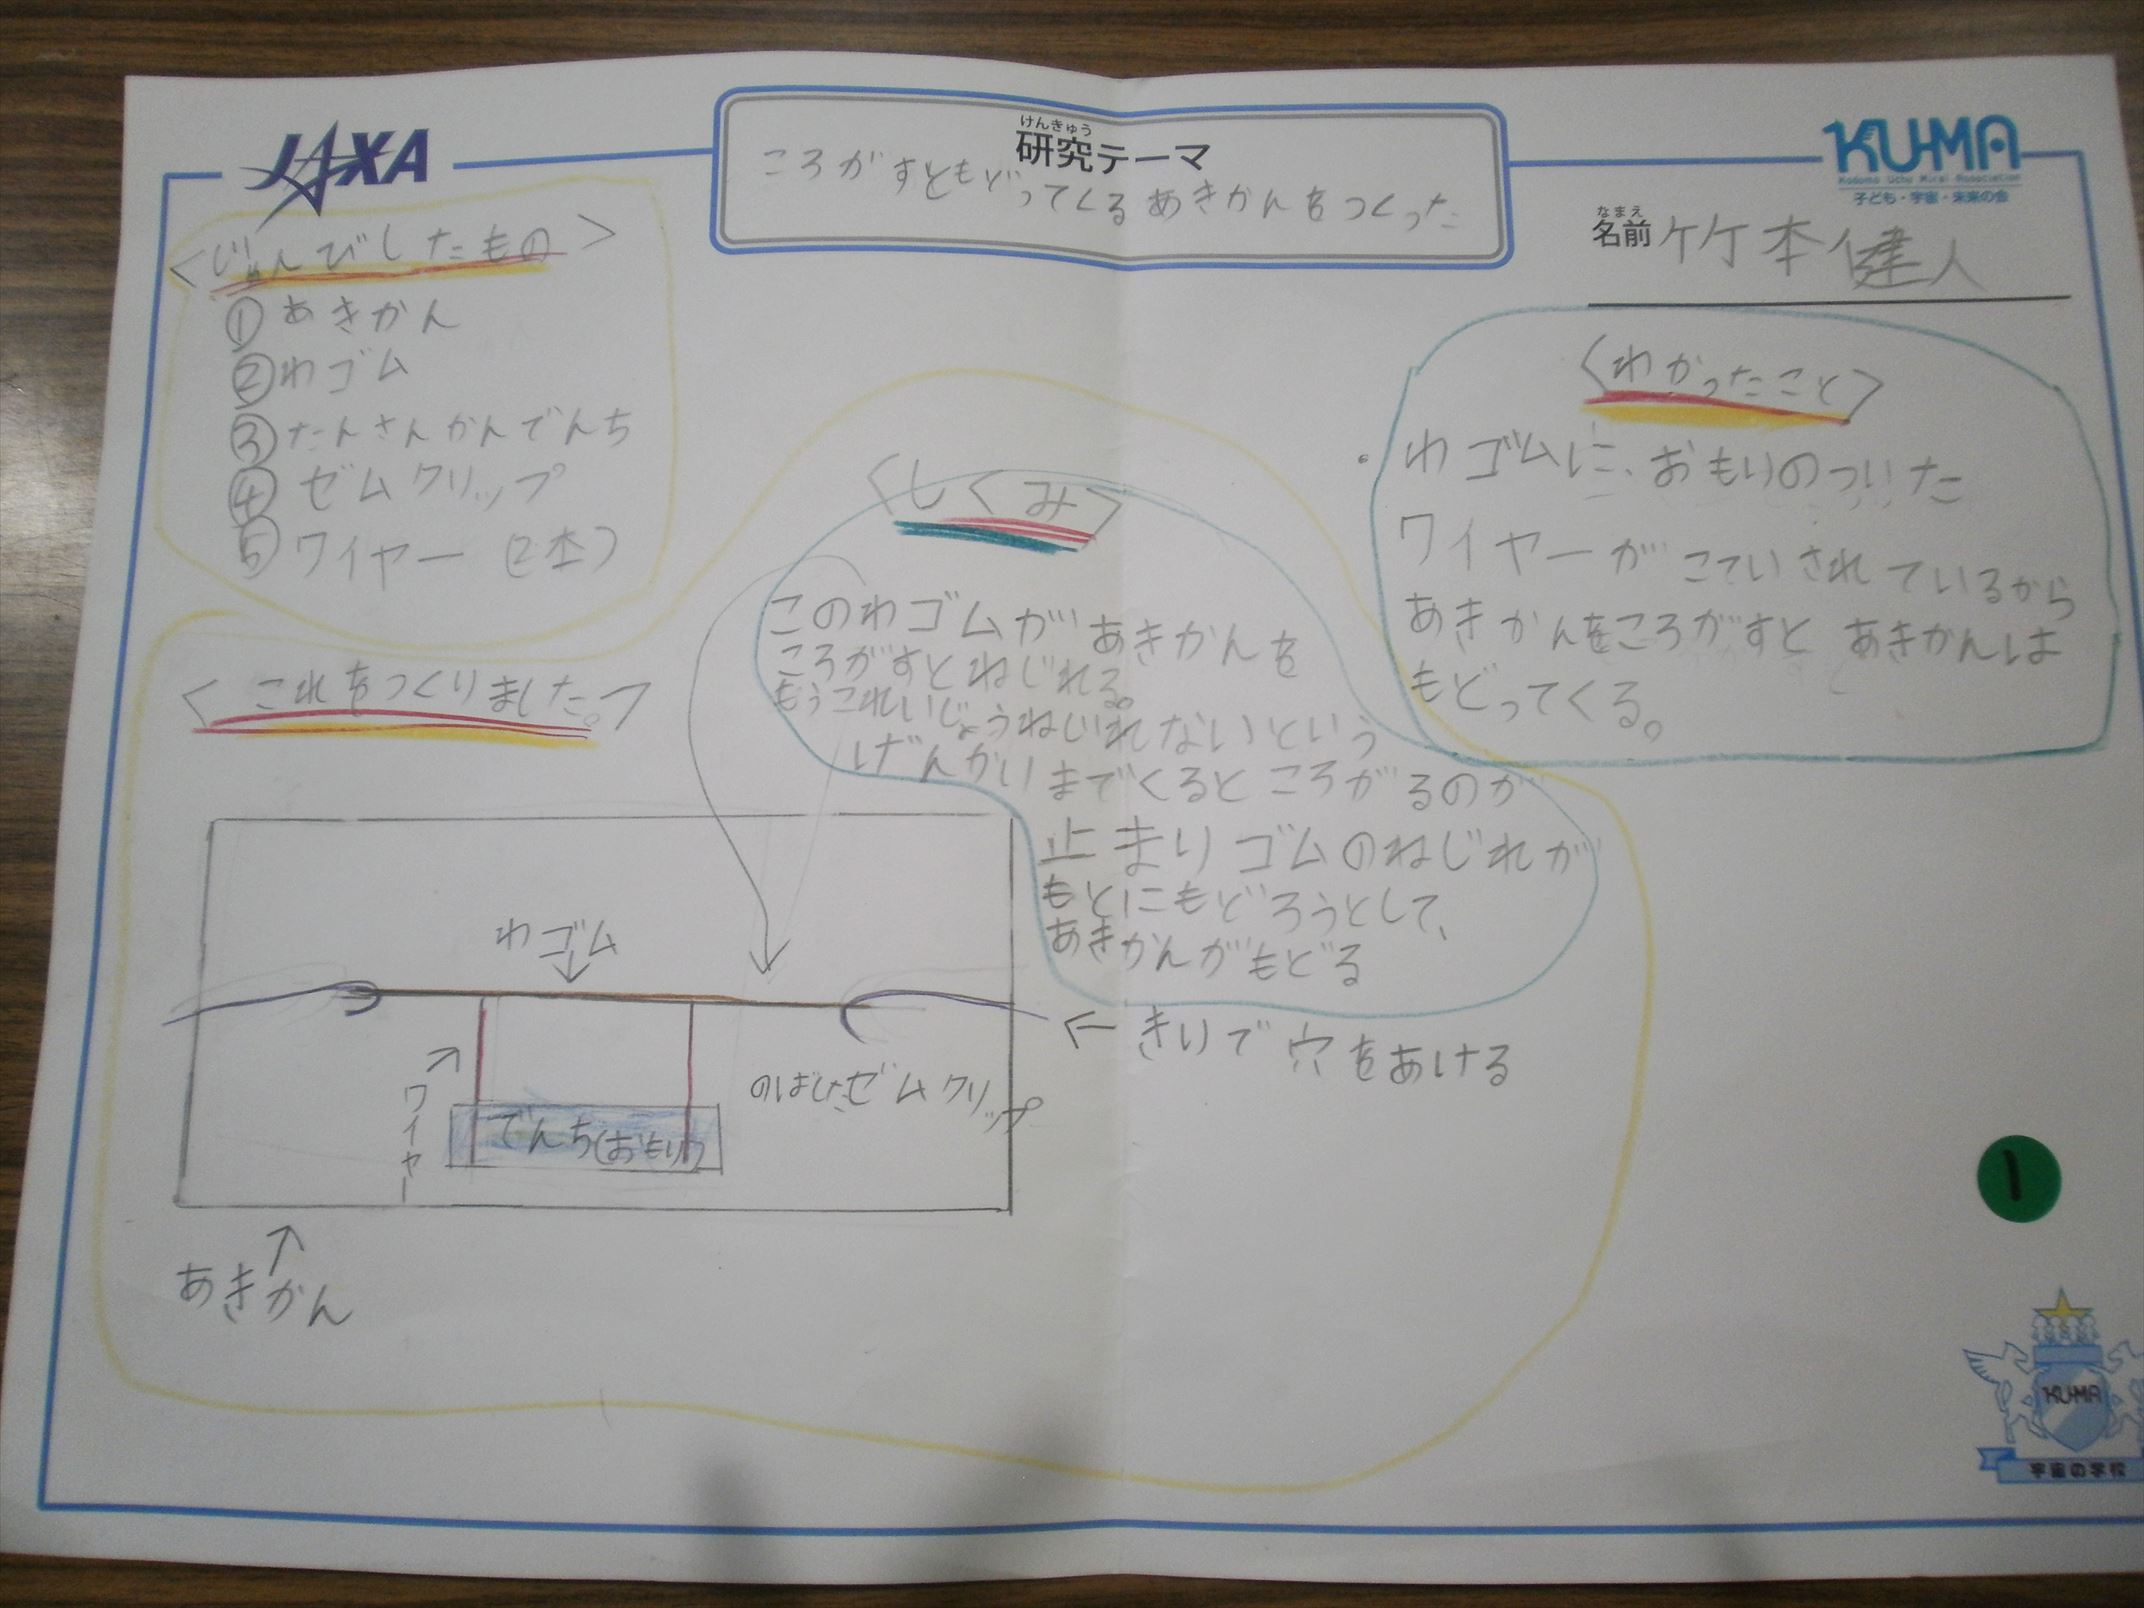 JAXA
けんきゅう
研究テーマ
ころがすともどってくるあきかんをつくった
KU-MA
Kodomo Uchu Mirai Association
子ども・宇宙・未来の会
なまえ
名前 竹本健人
<じゅんびしたもの>
①あきかん
②わゴム
③たんさんかんでんち
④ゼムクリップ
⑤ワイヤー(2本)
<これをつくりました。>
わゴム
ワイヤー
でんち(おもり)
のばしたゼムクリップ
←きりで穴をあける
あきかん
<しくみ>
このわゴムがあきかんを
ころがすとねじれる。
もうこれいじょうねじれないという
げんかいまでくるところがるのが
止まりゴムのねじれが
もとにもどろうとして、
あきかんがもどる
<わかったこと>
・わゴムに、おもりのついた
ワイヤーがこていされているから
あきかんをころがすとあきかんは
もどってくる。
1
KU-MA
宇宙の学校